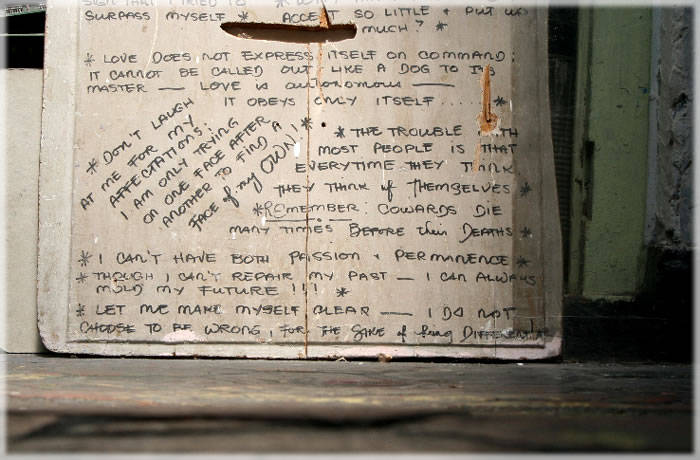 SIGN THAT I TRIED TO
SURPASS MYSELF * ACCEPT SO LITTLE + PUT UP
MUCH? *
* LOVE DOES NOT EXPRESS ITSELF ON COMMAND;
IT CANNOT BE CALLED OUT LIKE A DOG TO ITS
MASTER — LOVE IS autonomous —
IT OBEYS ONLY ITSELF ..... *
* DON'T LAUGH
AT ME FOR MY
AFFECTATIONS:
I AM ONLY TRYING
ON ONE FACE AFTER
ANOTHER TO FIND A
FACE of my OWN! *
* THE TROUBLE WITH
MOST PEOPLE IS THAT
EVERYTIME THEY THINK,
THEY THINK of THEMSELVES *
* REMEMBER: COWARDS DIE
MANY TIMES BEFORE their DEATHS *
* I CAN'T HAVE BOTH PASSION + PERMANENCE *
* THOUGH I CAN'T REPAIR MY PAST — I CAN ALWAYS
MOLD MY FUTURE !!! *
* LET ME MAKE MYSELF CLEAR — I DO NOT
CHOOSE TO BE WRONG, FOR THE SAKE of being DIFFERENT